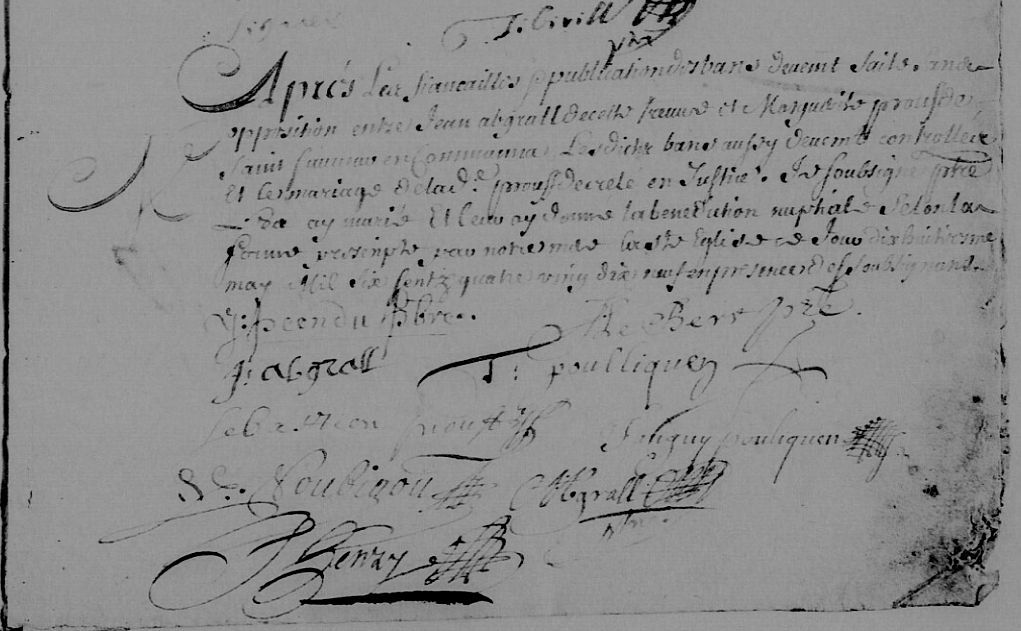 J: Civill
pbre
Après Les fiancailles & publication des bans deuemt faite sans
opposition entre Jean abgrall de cette treuve et Marguerite prouff de
saint sauveur en Commanna, Lesdicts bans aussy deuemt controllées
Et Le mariage de lad.e prouff decreté en Justice. Je soubsigné ptre
ay marié Et leur ay donné la benediction nuptiale Selon la
forme prescripte par notre mere la ste Eglise ce Jour dix huitiesme
may Mil six sentz quatre vingt dix neuf en presence des soubsignants
Y: pbre.
pre.
J: abgrall
T: poulliquen
Sebastien prouff
Tanguy pouliquen
Noubigou
Abgrall
Henry